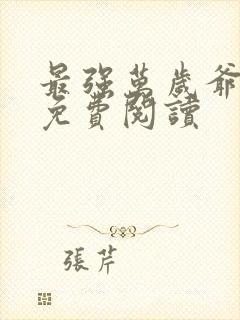 最強萬歲爺
免費閱讀
張芹